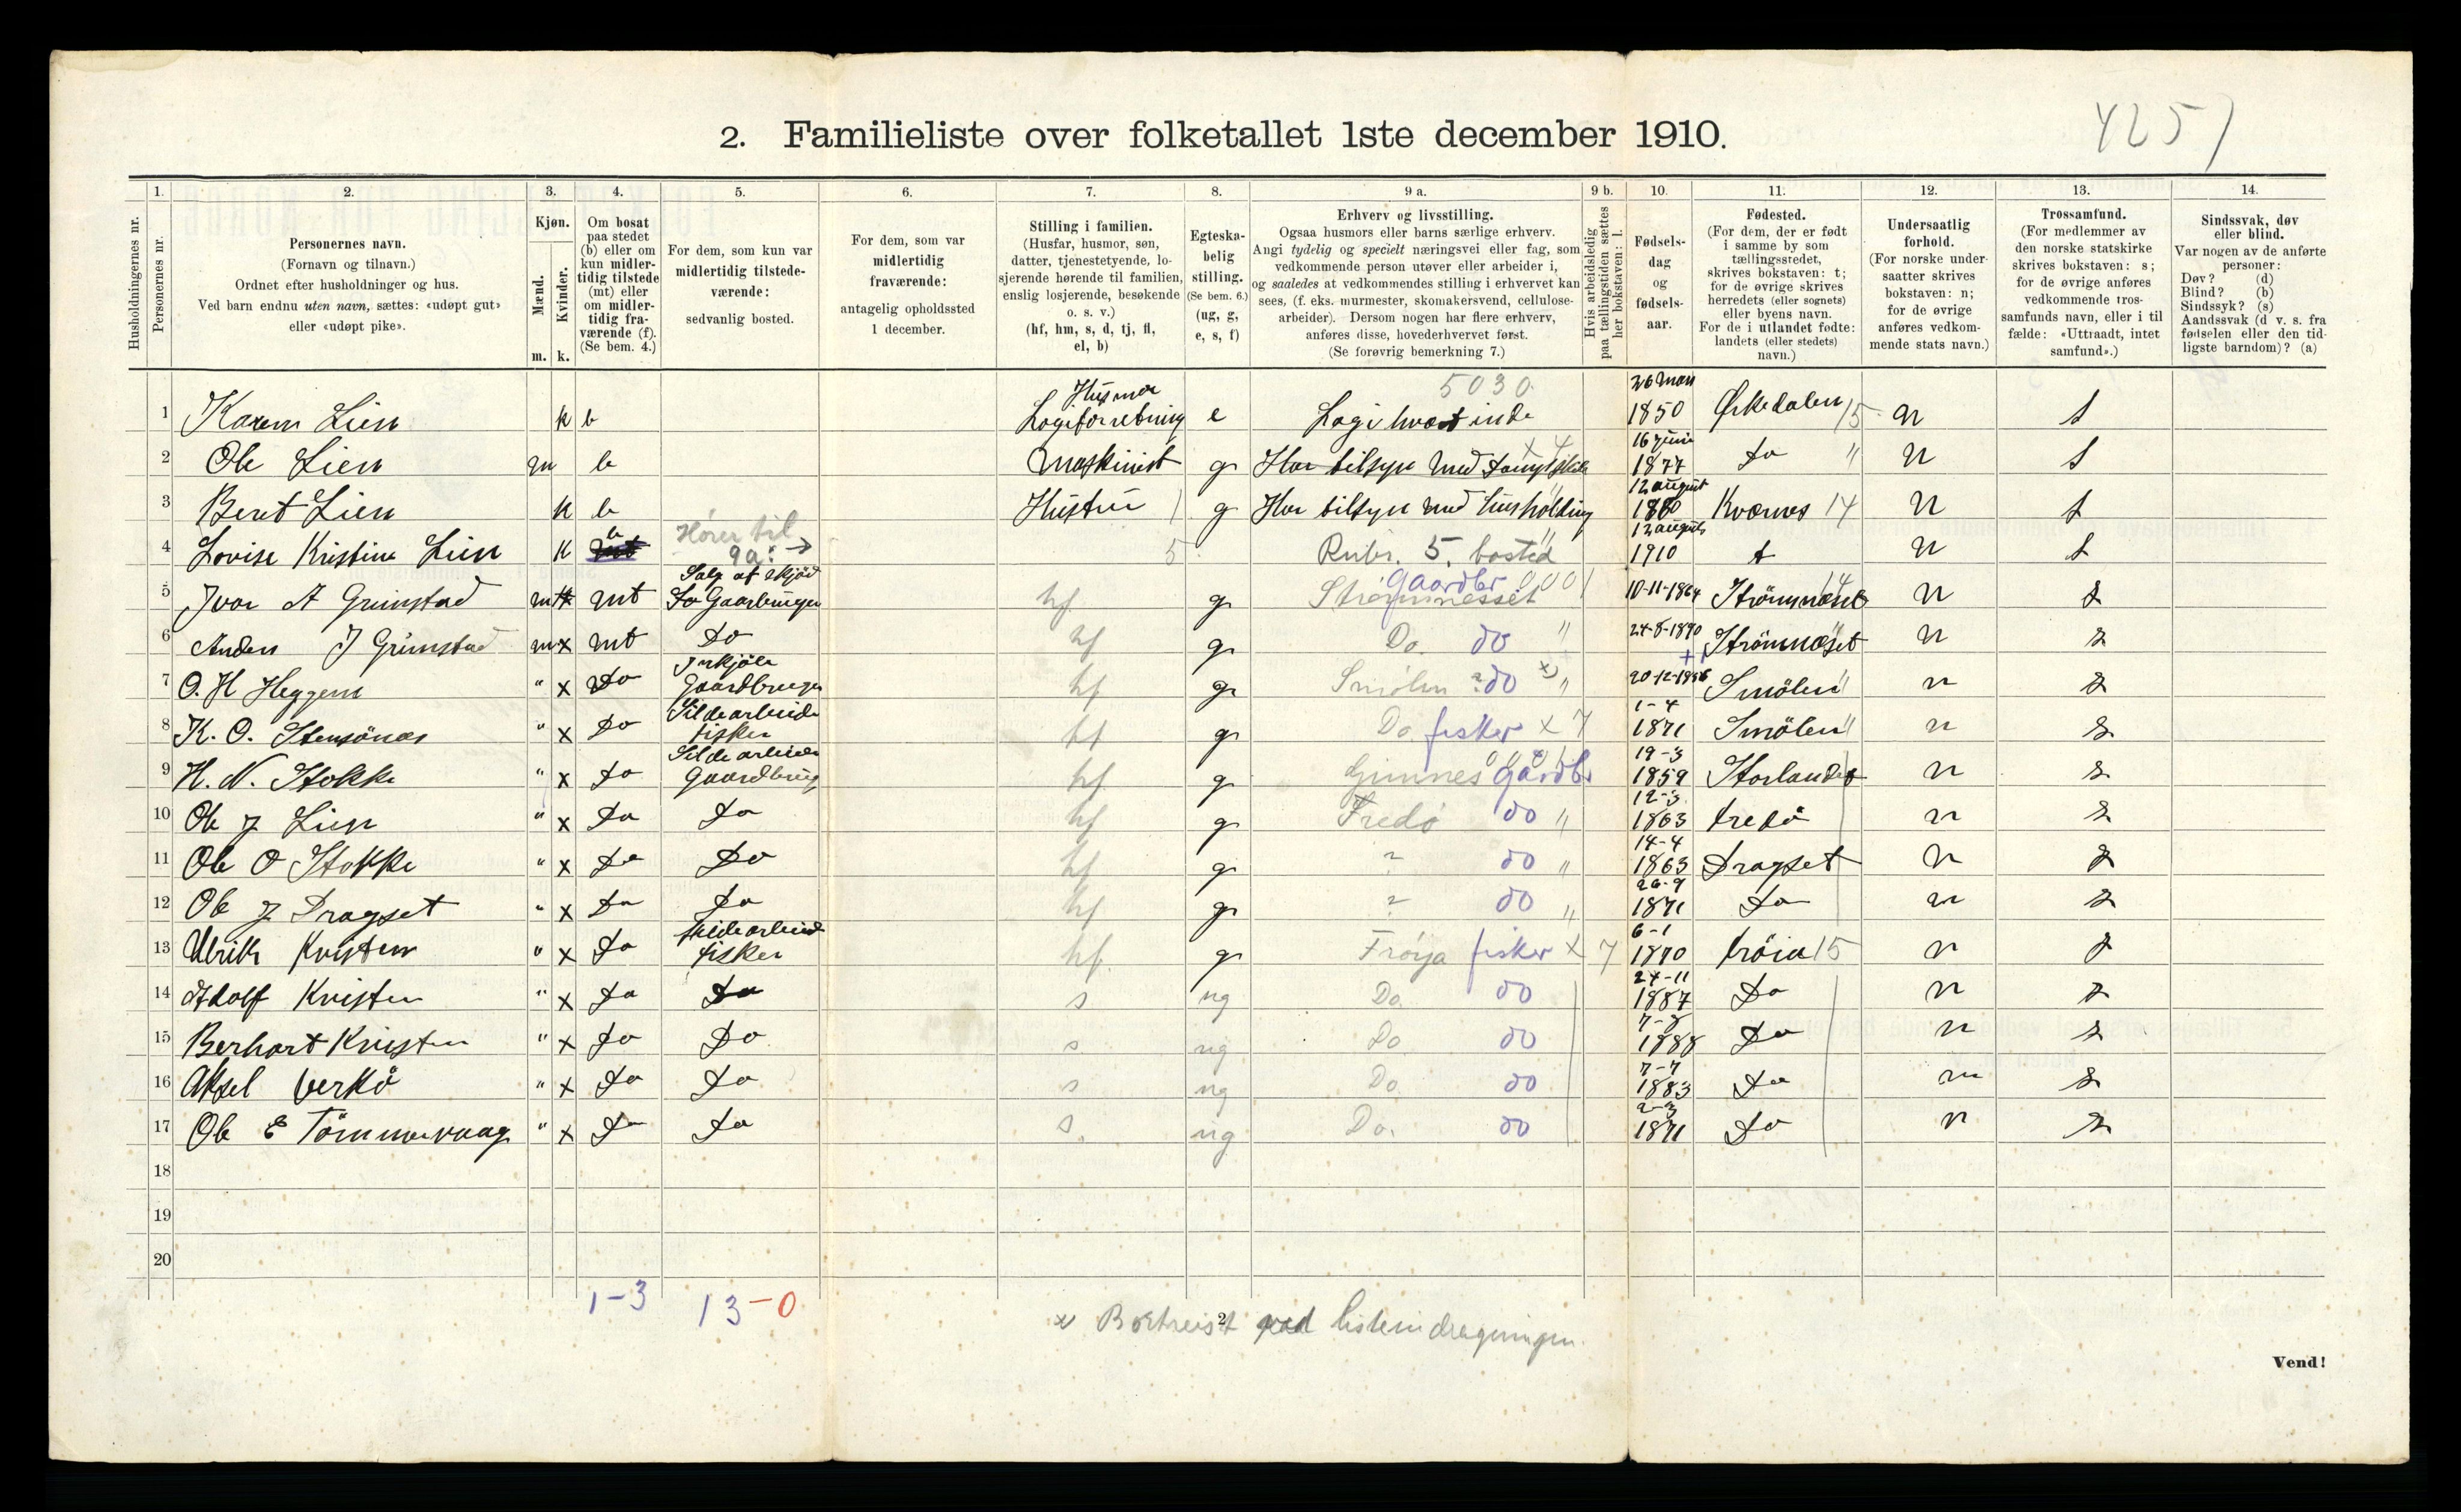 4251
2. Familieliste over folketallet 1ste december 1910.
1. 2. 3. 4. 5. 6. 7. 8. 9 a. 9 b. 10. 11. 12. 13. 14.
Husholdningernes nr.
Personernes nr.
Personernes navn.
(Fornavn og tilnavn.)
Ordnet efter husholdninger og hus.
Ved barn endnu uten navn, sættes: «udøpt gut»
eller «udøpt pike».
Kjøn.
Mænd.
Kvinder.
m. k.
Om bosat
paa stedet
(b) eller om
kun midler-
tidig tilstede
(mt) eller
om midler-
tidig fra-
værende (f).
(Se bem. 4.)
For dem, som kun var
midlertidig tilstede-
værende:
sedvanlig bosted.
For dem, som var
midlertidig
fraværende:
antagelig opholdssted
1 december.
Stilling i familien.
(Husfar, husmor, søn,
datter, tjenestetyende, lo-
sjerende hørende til familien,
enslig losjerende, besøkende
o. s. v.)
(hf, hm, s, d, tj, fl,
el, b)
Egteska-
belig
stilling.
(Se bem. 6.)
(ug, g,
e, s, f)
Erhverv og livsstilling.
Ogsaa husmors eller barns særlige erhverv.
Angi tydelig og specielt næringsvei eller fag, som
vedkommende person utøver eller arbeider i,
og saaledes at vedkommendes stilling i erhvervet kan
sees, (f. eks. murmester, skomakersvend, cellulose-
arbeider). Dersom nogen har flere erhverv,
anføres disse, hovederhvervet først.
(Se forøvrig bemerkning 7.)
Hvis arbeidsledig
paa tællingstiden sættes
her bokstaven: l.
Fødsels-
dag
og
fødsels-
aar.
Fødested.
(For dem, der er født
i samme by som
tællingsstedet,
skrives bokstaven: t;
for de øvrige skrives
herredets (eller sognets)
eller byens navn.
For de i utlandet fødte:
landets (eller stedets)
navn.)
Undersaatlig
forhold.
(For norske under-
saatter skrives
bokstaven: n;
for de øvrige
anføres vedkom-
mende stats navn.)
Trossamfund.
(For medlemmer av
den norske statskirke
skrives bokstaven: s;
for de øvrige anføres
vedkommende tros-
samfunds navn, eller i til
fælde: «Uttraadt, intet
samfund».)
Sindssvak, døv
eller blind.
Var nogen av de anførte
personer:
Døv? (d)
Blind? (b)
Sindssyk? (s)
Aandssvak (d v. s. fra
fødselen eller den tid-
ligste barndom)? (a)
Husmor 5030
1 Karen Lien k b Logiforretning e Logi 1850 Ørkedalen 15 n s
16 juni
2 Ole Lien m b Maskinist g Har tilsyn med 1877 Do " n s
12 august
3 Beret Lien k b Hustru g Har tilsyn med husholdning 1880 Kvernes 14 n s
Hører til 12 august
4 Lovise Kristine Lien k b 9a: → 5 Rubr. 5. bosted 1910 t n s
Gaardbr 0001
5 Ivar A Grimstad m mt hf g Strømnesset 10-11-1864 Strømnæset n s
6 Anders J Grimstad m x mt Do hf g Do. do " 24-8-1890 Strømnæset n s
7 O. H Heggem " x Do Gaardbruger hf g Smølen ? do x) " Smölen " n s
Sildearbeide 1-4
8 K. O. Stensönes " x Do fisker hf g Do fisker x 7 1871 Smölen " n s
Sildearbeide 19-3
9 H. N. Stokke " x Do Gaardbrug hf g Gimnes Gardbr 1859 n s
12-3
10 Ole J Lien " x Do Do hf g Fredø do " 1863 fredö n s
14-4
11 Ole O Stokke " x Do Do hf g ? do " 1863 Dragset n s
26-9
12 Ole J Dragset " x Do Do hf g ? do " 1871 Do n s
Sildearbeid 6-1
13 Ulrik Kristen " x Do fisker hf. g Frøya fisker x 7 1870 fröia 15 n s
24-11
14 Adolf Kristen " x Do Do s ug Do. do 1887 Do n s
7-8
15 Berhart Kristen " x Do Do s ug Do do 1888 Do n s
7-7
16 Aksel Verkö " x Do Do s ug Do. do 1883 Do n s
2-3
17 Ole E Tömmervaag " x Do Do s. ug Do. do 1871 Do n s
18
19
20
1-3 13-0
2
x Bortreist ved listeinddragningen.
Vend!